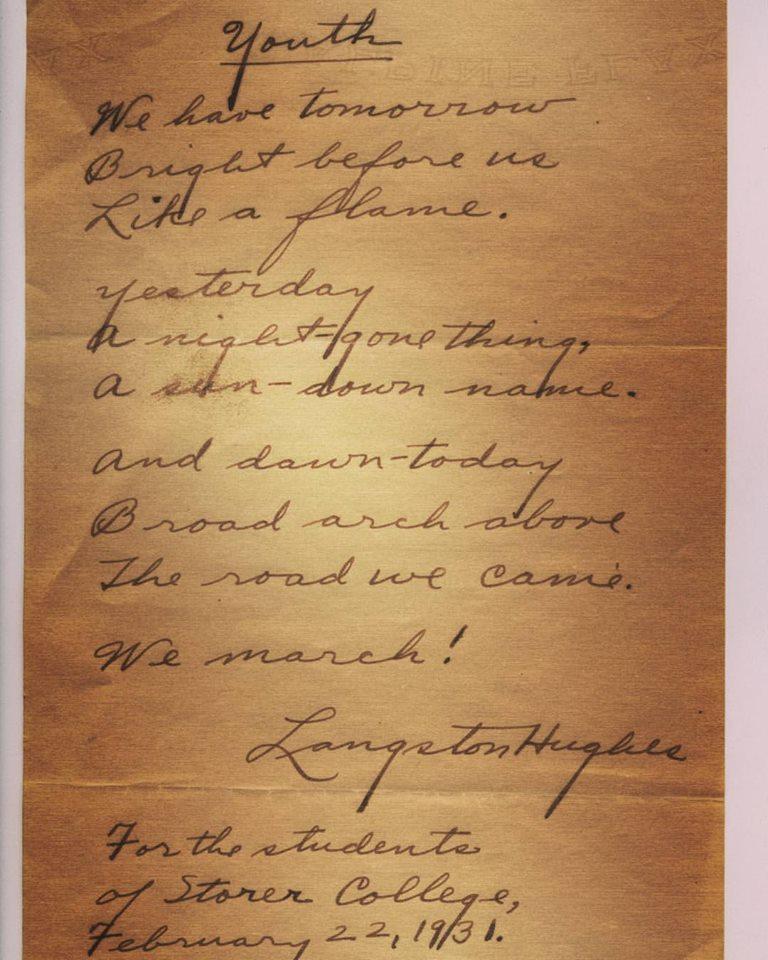 Youth
We have tomorrow
Bright before us
Like a flame.
yesterday
a night-gone thing,
a sun-down name.
and dawn-today
Broad arch above
The road we came.
We march!
Langston Hughes
For the students
of Storer College,
February 22, 1931.